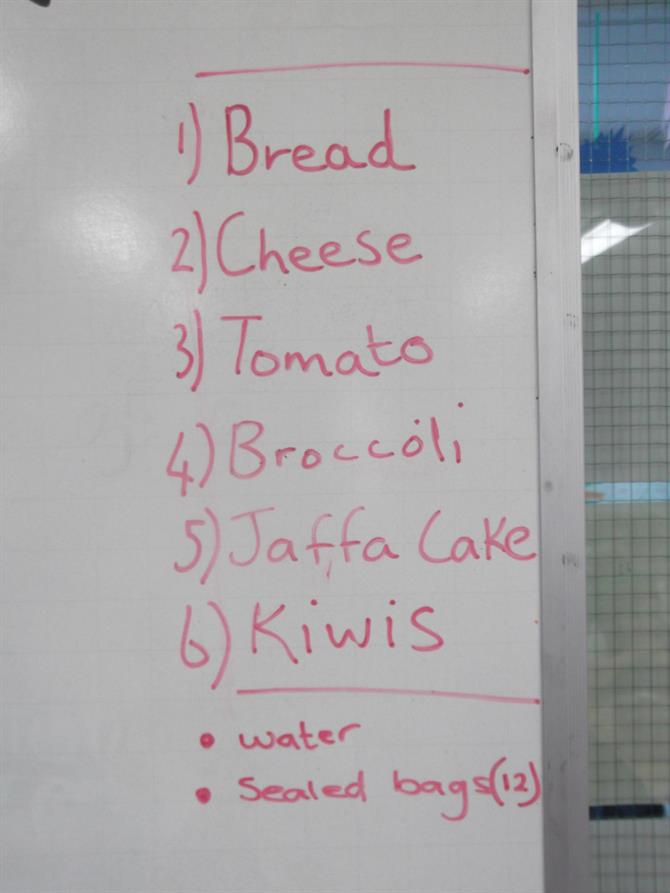 1) Bread
2) Cheese
3) Tomato
4) Broccoli
5) Jaffa Cake
6) Kiwis
• water
• Sealed bags (12)